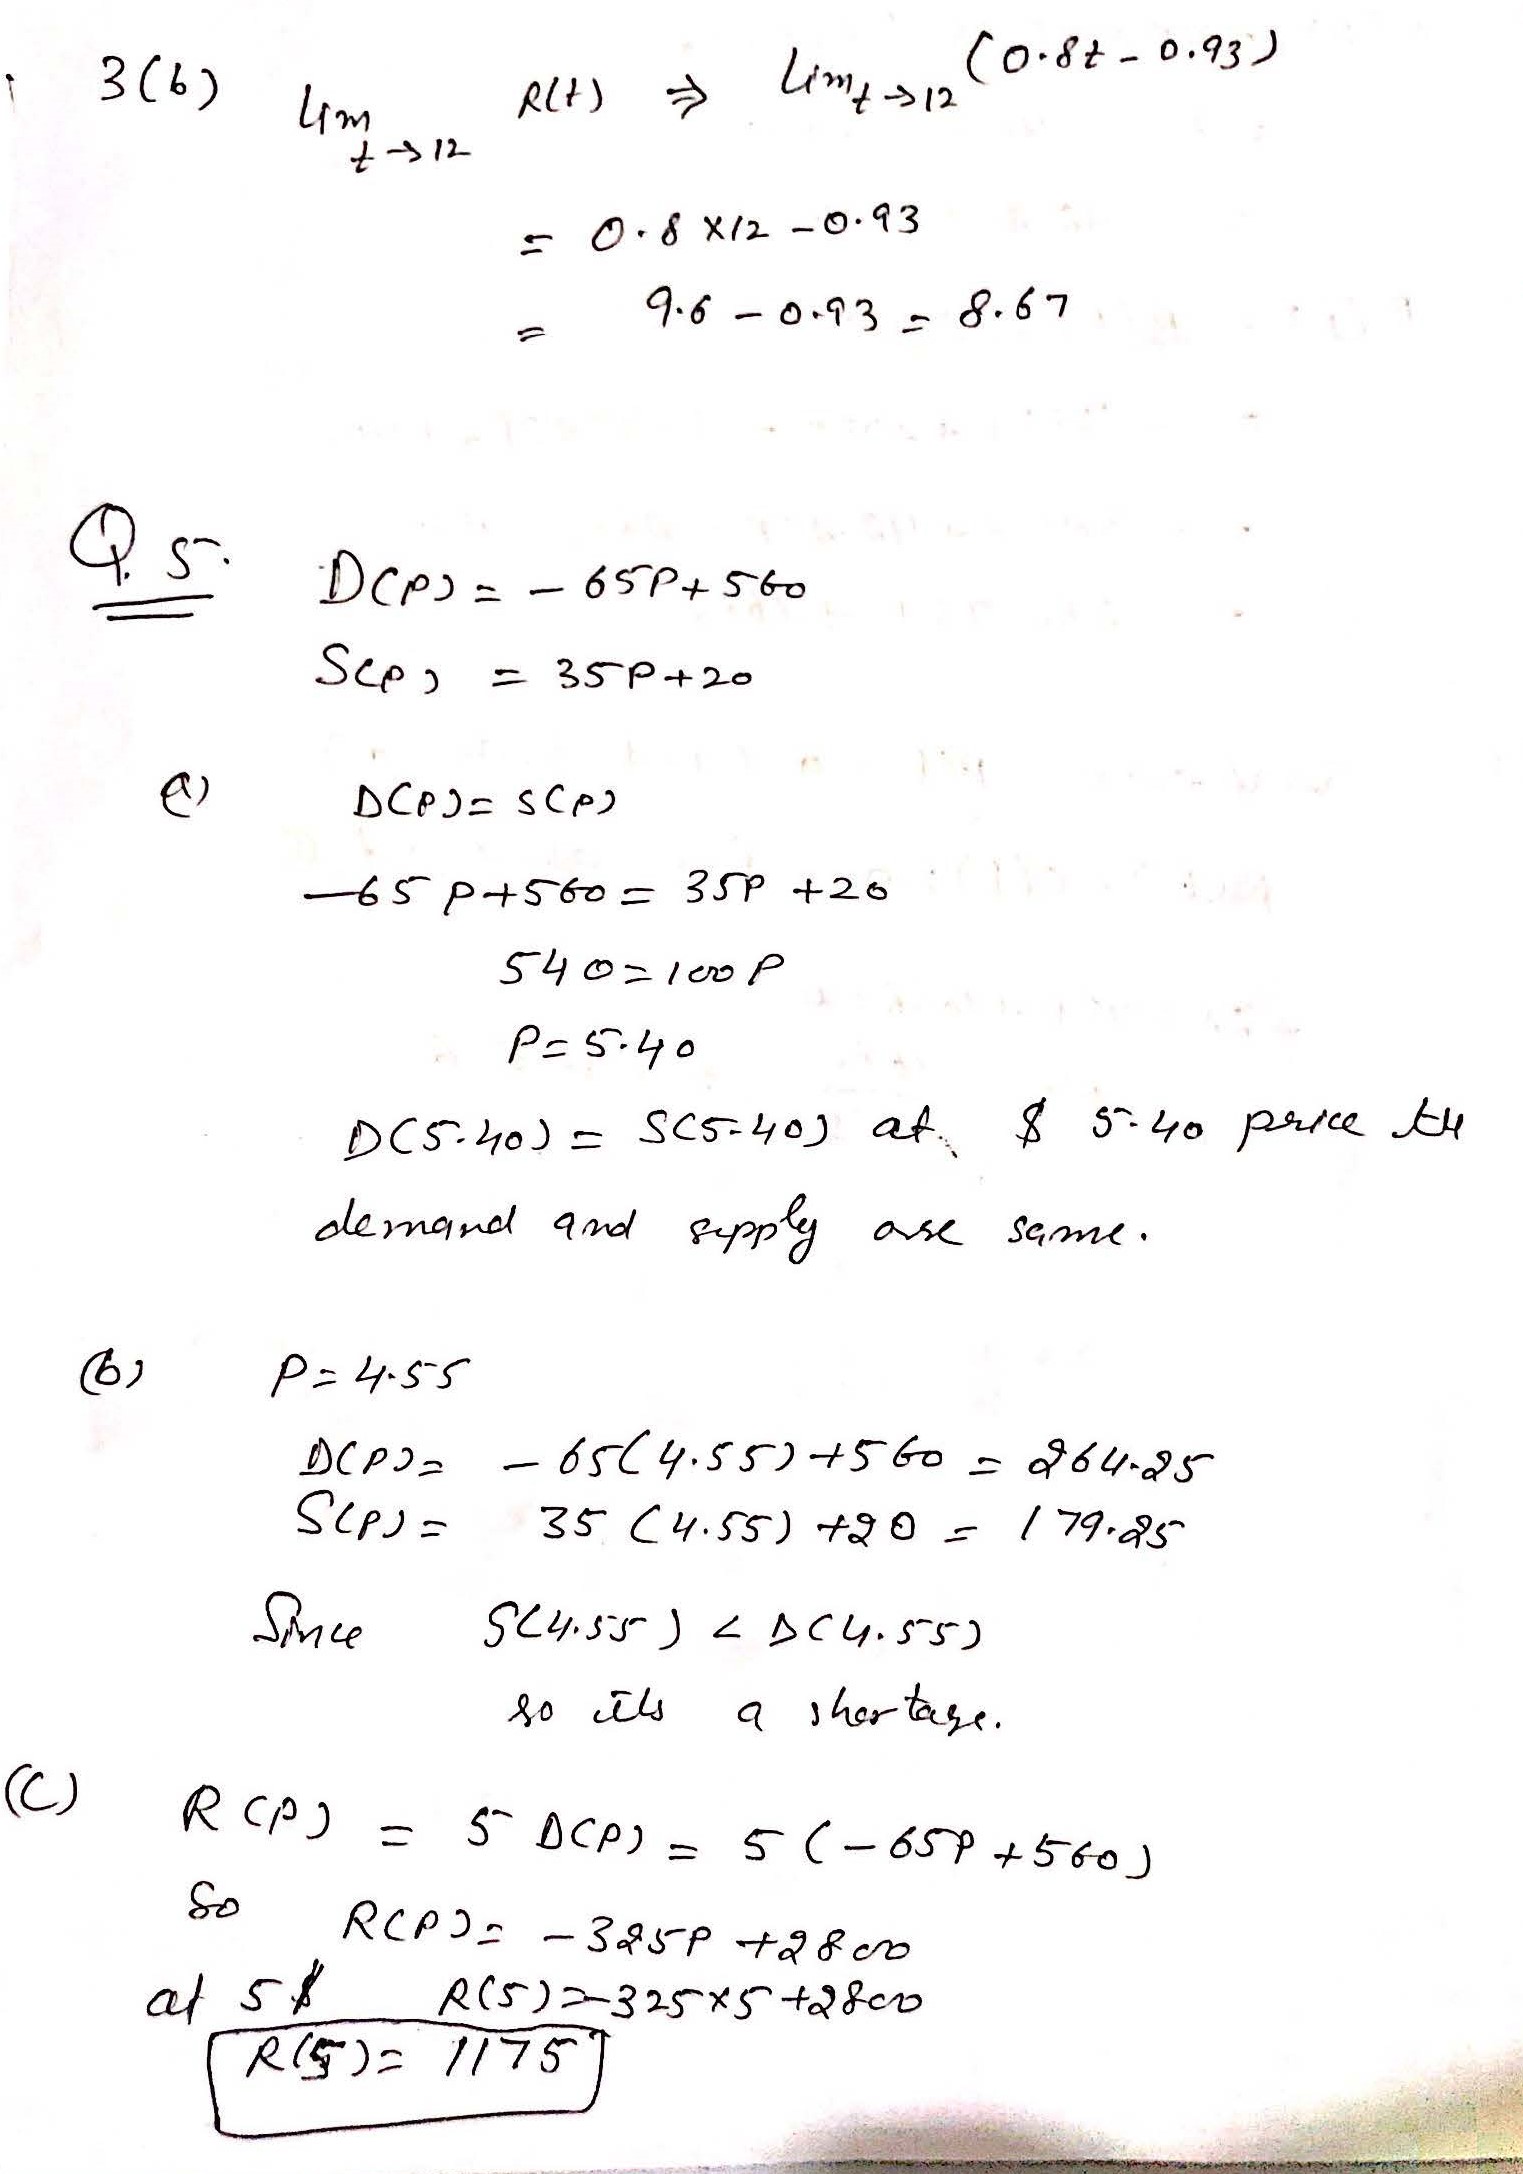 3(b) Lim t→12 R(t) ⇒ Lim t→12 (0.8t - 0.93)
= 0.8 × 12 - 0.93
= 9.6 - 0.93 = 8.67
Q.5. D(P) = - 65P + 560
S(P) = 35P + 20
a) D(P) = S(P)
-65P + 560 = 35P + 20
540 = 100P
P = 5.40
D(5.40) = S(5.40) at $ 5.40 price the
demand and supply are same.
(b) P = 4.55
D(P) = - 65(4.55) + 560 = 264.25
S(P) = 35 (4.55) + 20 = 179.25
Since S(4.55) < D(4.55)
so its a shortage.
(C) R(P) = 5 D(P) = 5 (- 65P + 560)
So R(P) = - 325P + 2800
at 5$ R(5) = -325×5 + 2800
R(5) = 1175